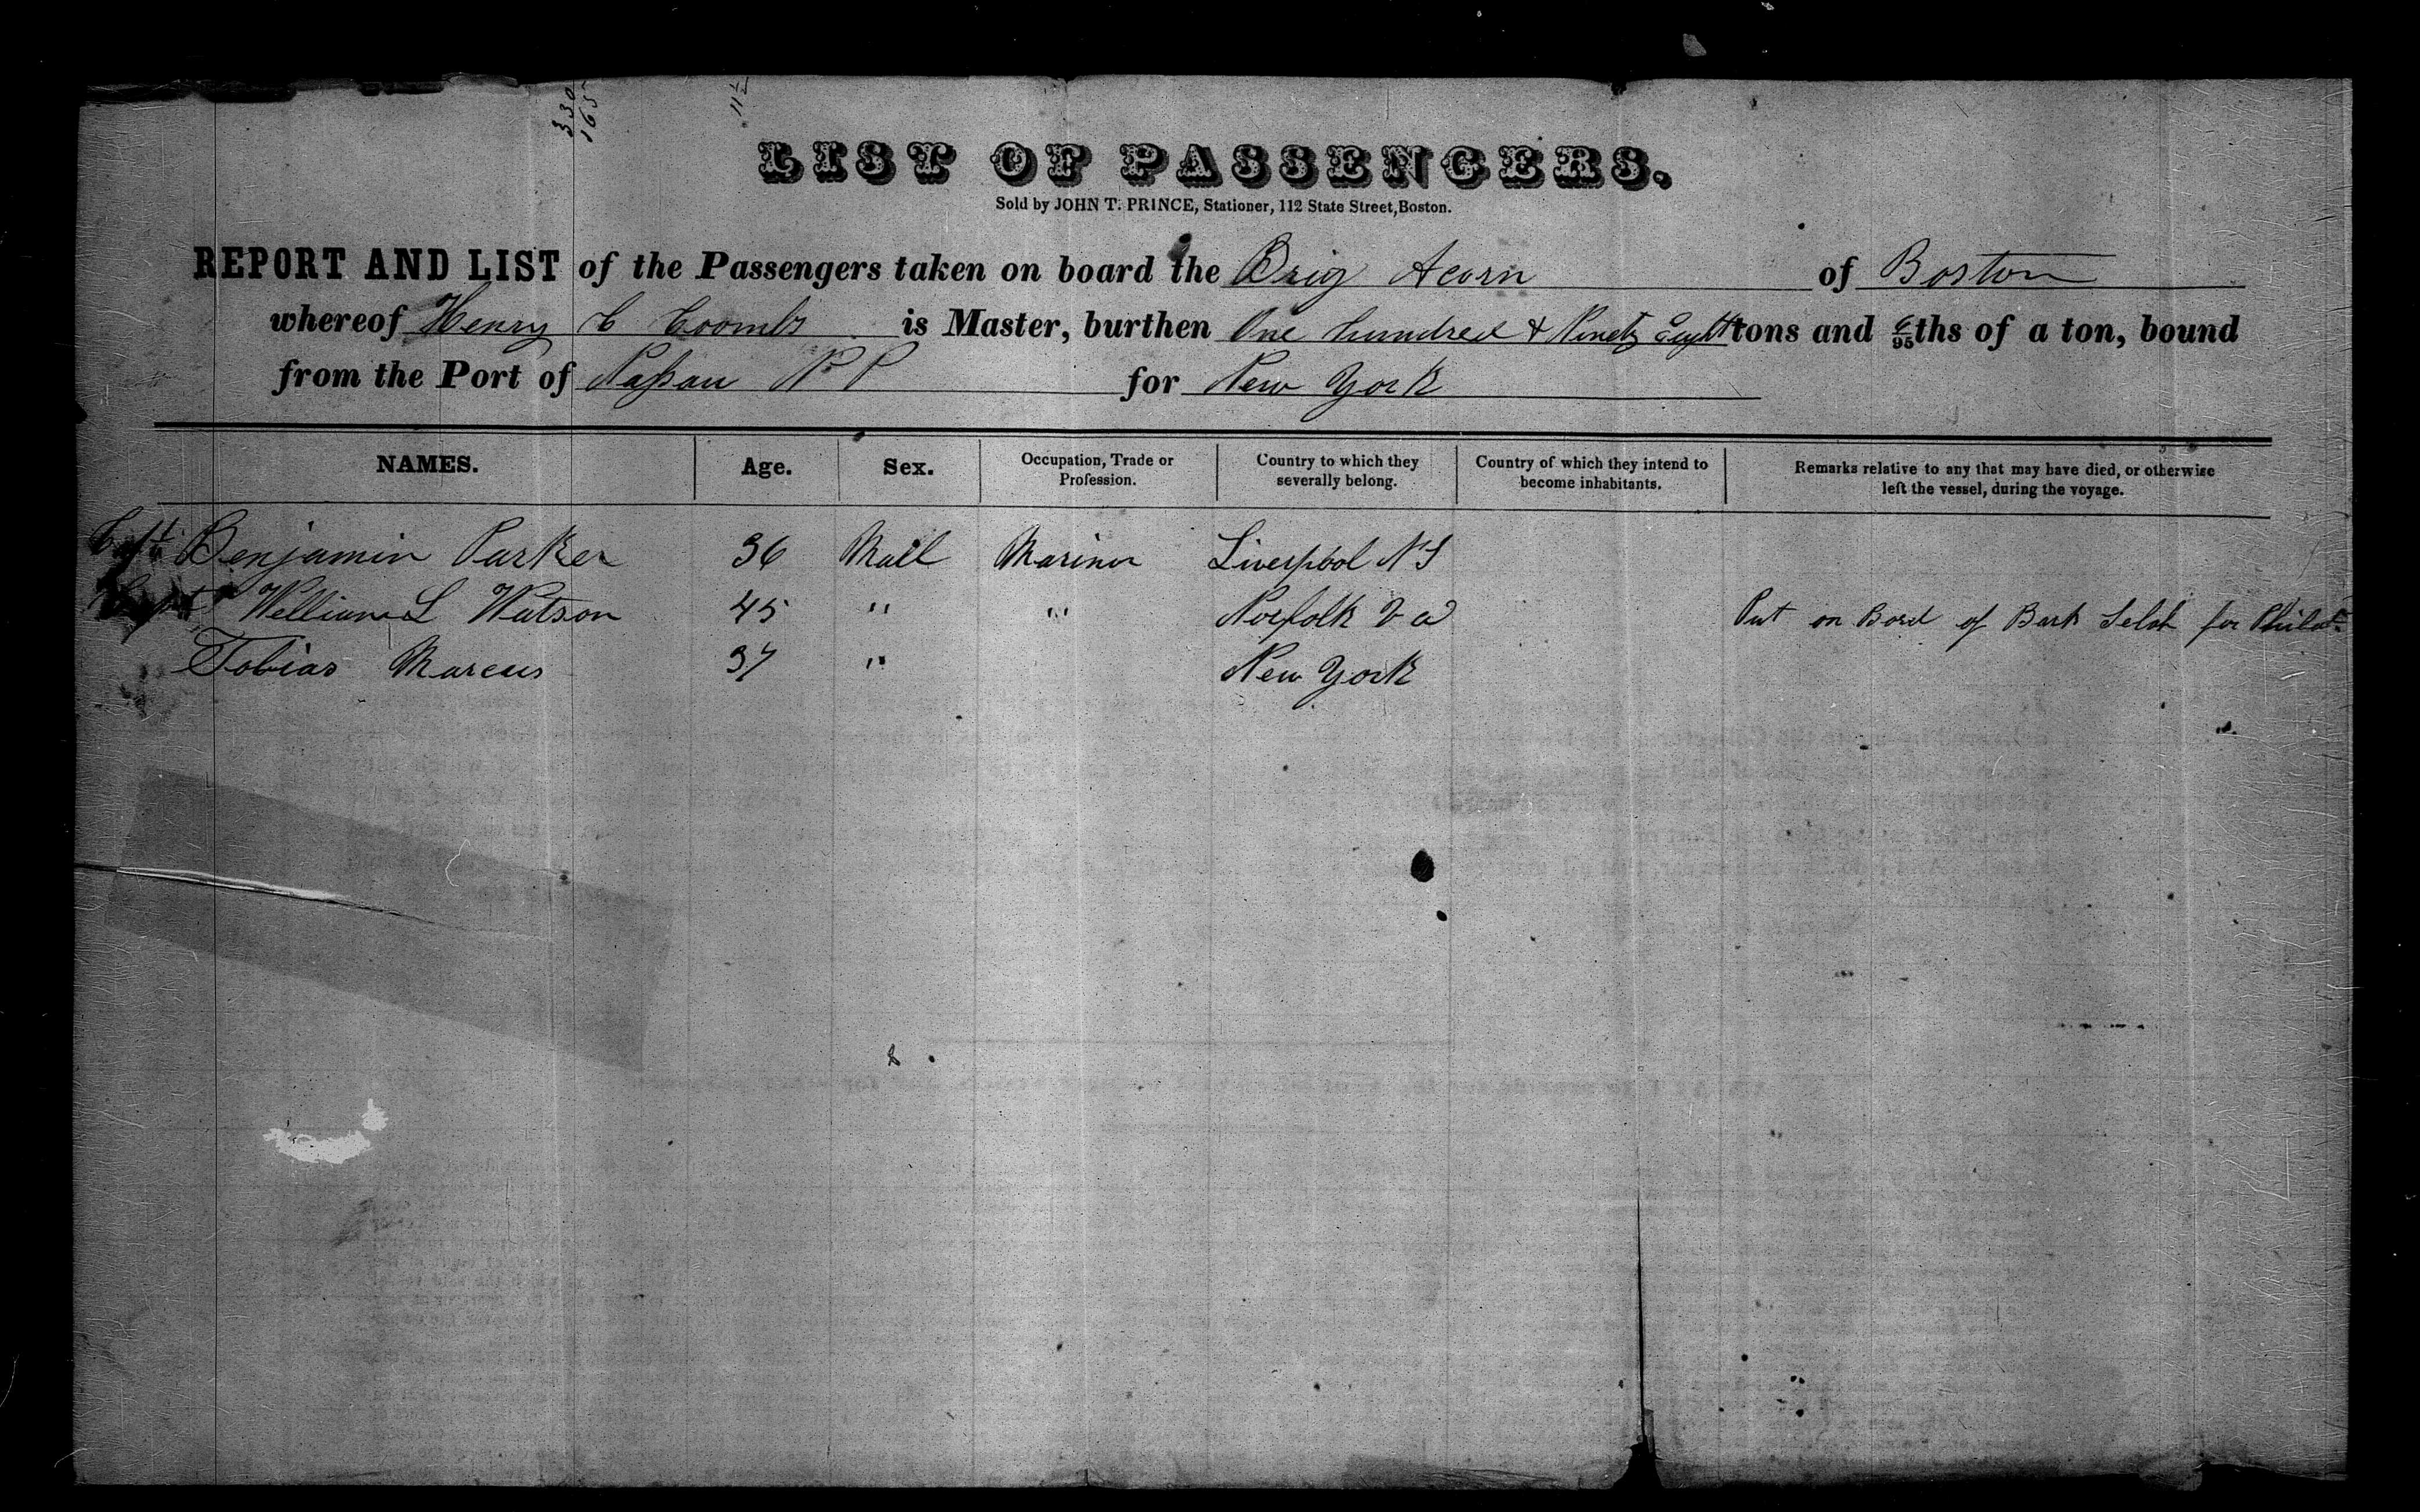 330
165
11½
LIST OF PASSENGERS.
Sold by JOHN T. PRINCE, Stationer, 112 State Street, Boston.
REPORT AND LIST of the Passengers taken on board the Brig Acorn of Boston
whereof Henry C Coombs is Master, burthen One hundred & Ninety Eight tons and 6/95ths of a ton, bound
from the Port of Nassau N P for New York
NAMES. Age. Sex. Occupation, Trade or Profession. Country to which they severally belong. Country of which they intend to become inhabitants. Remarks relative to any that may have died, or otherwise left the vessel, during the voyage.
Capt Benjamin Parker 36 Mail Mariner Liverpool NS
Capt William L Watson 45 " " Norfolk Va Put on Bord of Bark Selah for Philad
Tobias Marcus 37 " New York